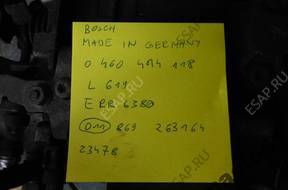 BOSCH
MADE IN GERMANY
0 460 414 118
L 619
ERR 6380
D11 869 263164
23478
ESPAP.COM